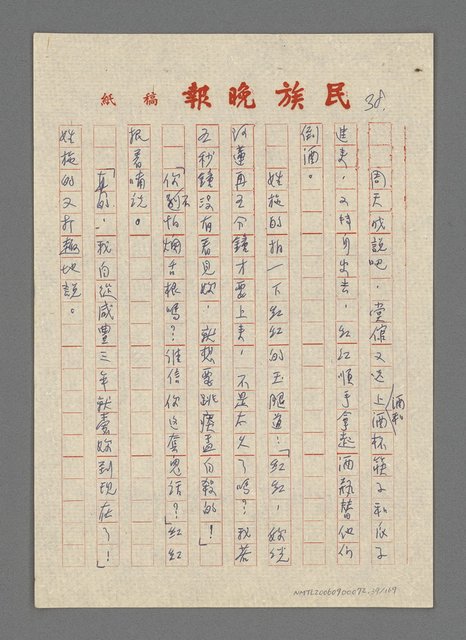 民族晚報 稿紙
38.
周天成說吧，堂倌又送上酒和酒杯筷子和瓜子
進來，又轉身出去，紅紅順手拿起酒瓶替他們
倒酒。
姓施的拍一下紅紅的玉腿道：「紅紅，妳說
河蓮再五分鐘才要上來，不是太久了嗎？我若
五秒鐘沒有看見妳，就想要跳出自殺的！」
「你不怕爛舌根嗎？誰信你這套鬼話？」紅紅
抿着嘴說。
「真的，我自從咸豐三年就愛妳到現在了！」
姓施的又打趣地說。
NMTL20060900072.39/169